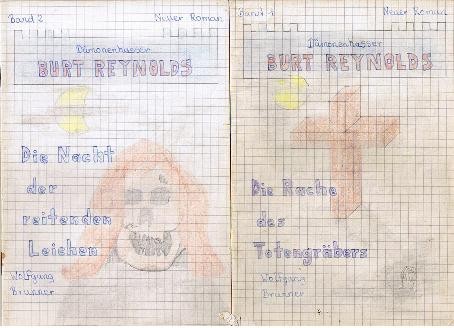 Band 2 Neuer Roman
Dämonenhasser
BURT REYNOLDS
Die Nacht
der
reitenden
Leichen
Wolfgang
Brunner
Band 1 Neuer Roman
Dämonenhasser
BURT REYNOLDS
Die Rache
des
Totengräbers
Wolfgang
Brunner